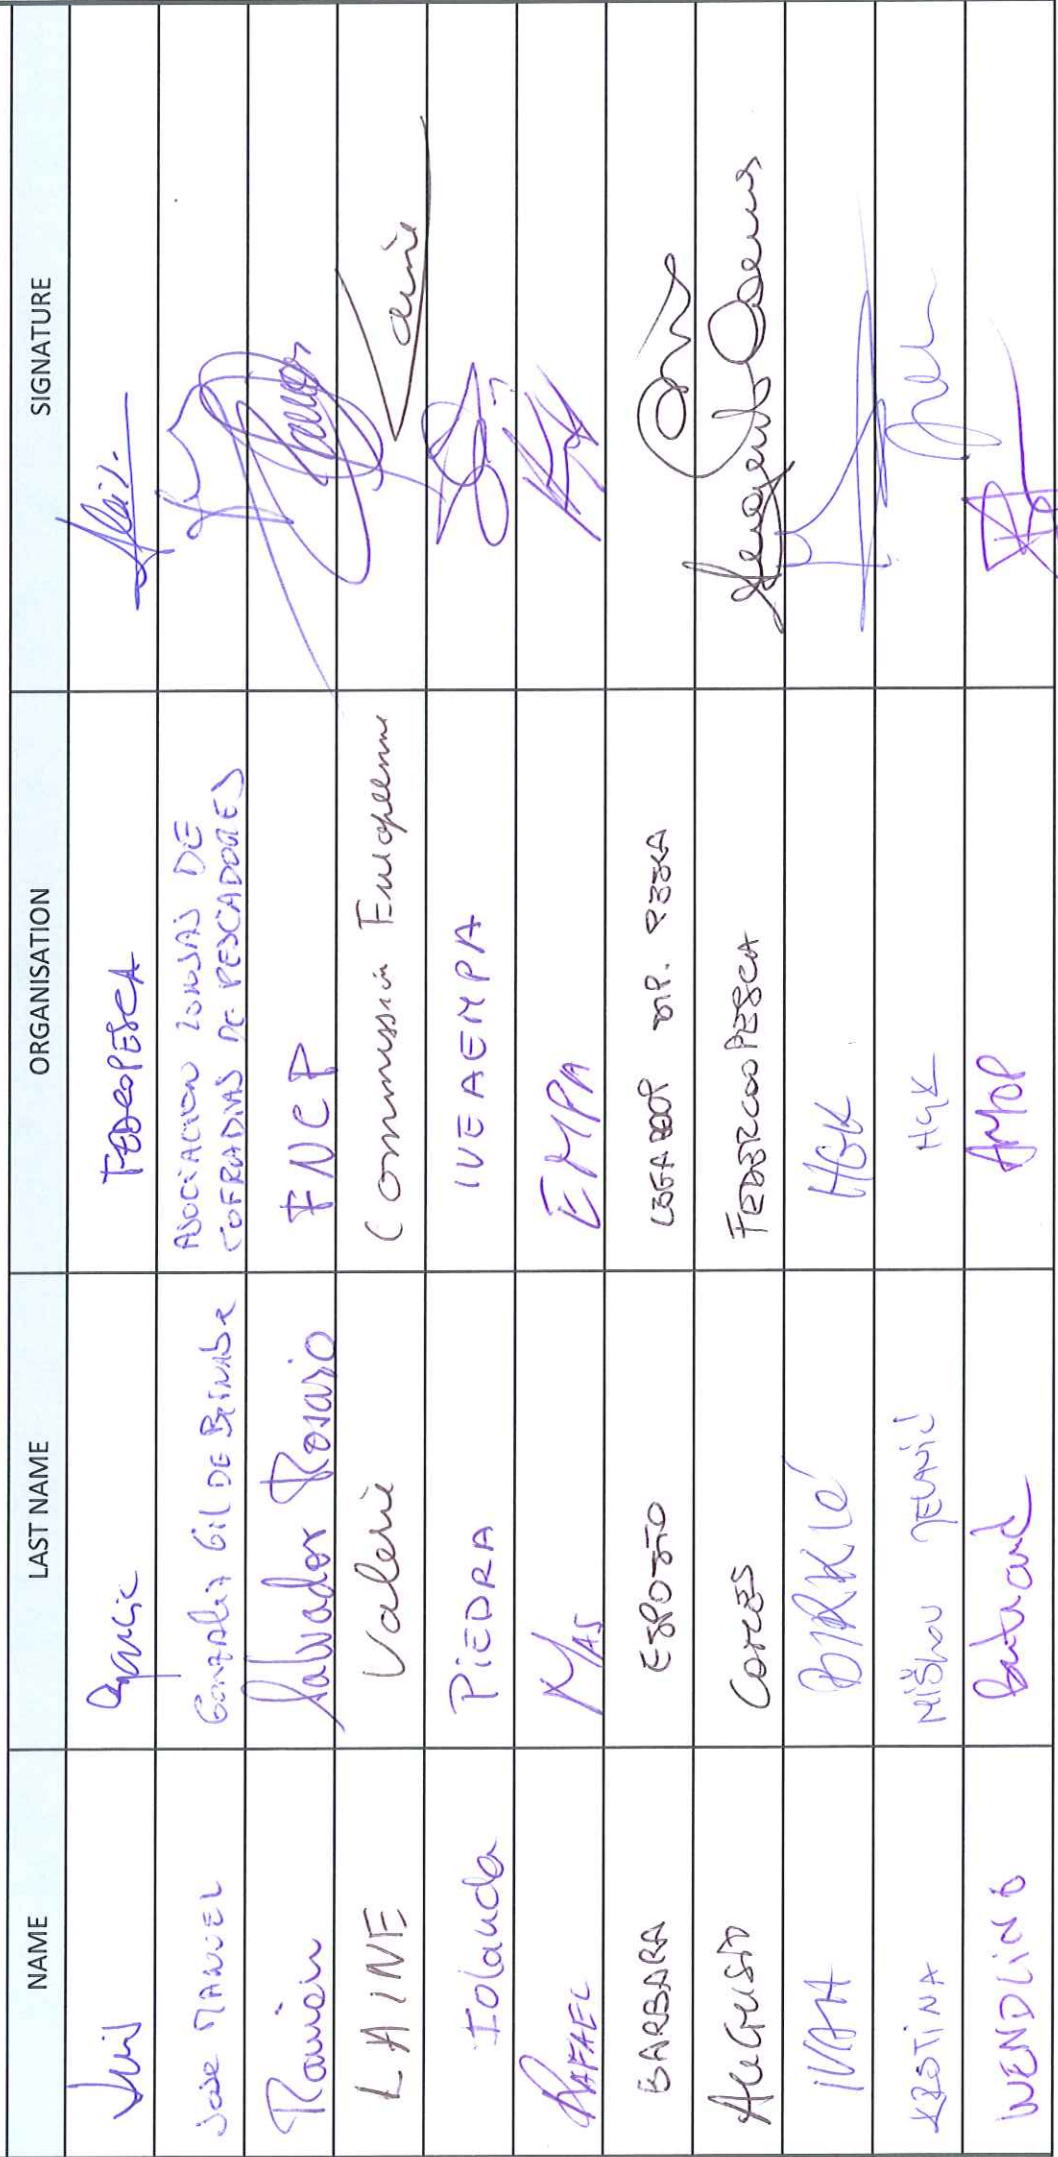 NAME LAST NAME ORGANISATION SIGNATURE
Luis FEDEROPESCA
José MANUEL González Gil DE BERNABE ASOCIACION LONJAS DE
COFRADIAS DE PESCADORES
Ramón Salvador Rosario FNCP
LAINE Valerie Commission Européenne Laine
Iolanda PIEDRA IVEAEMPA
RAFAEL MAS EMPA
BARBARA ESPOSITO LEGACOOP DIP. PESCA
AUGUSTO COMES FEDERCOOPESCA
IVAN BIRKIĆ HGK
KRISTINA MIŠLOV JELAVIĆ HGK
WENDLING Bertrand AMOP